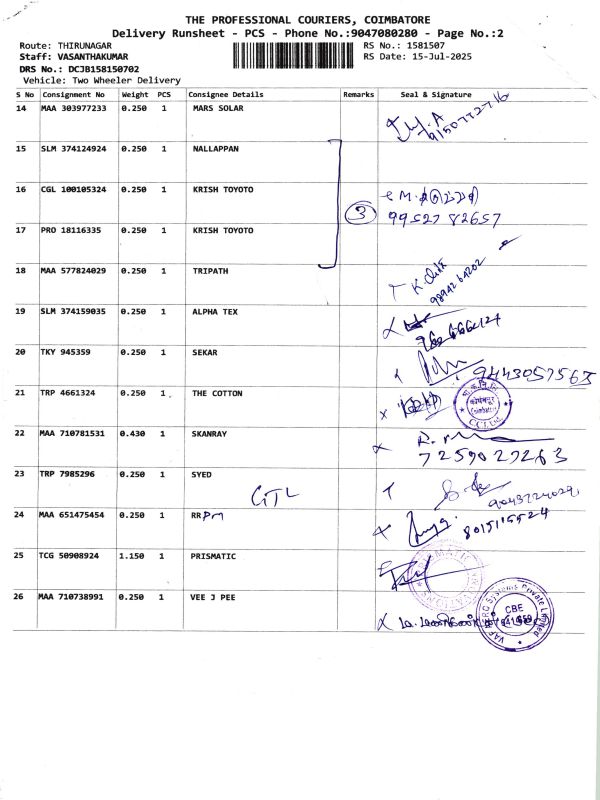 THE PROFESSIONAL COURIERS, COIMBATORE
Delivery Runsheet - PCS - Phone No.:9047080280 - Page No.:2
Route: THIRUNAGAR RS No.: 1581507
Staff: VASANTHAKUMAR RS Date: 15-Jul-2025
DRS No.: DCJB158150702
Vehicle: Two Wheeler Delivery
S No Consignment No Weight PCS Consignee Details Remarks Seal & Signature
14 MAA 303977233 0.250 1 MARS SOLAR
15 SLM 374124924 0.250 1 NALLAPPAN
16 CGL 100105324 0.250 1 KRISH TOYOTO
3 9952782657
17 PRO 18116335 0.250 1 KRISH TOYOTO
18 MAA 577824029 0.250 1 TRIPATH
19 SLM 374159035 0.250 1 ALPHA TEX
20 TKY 945359 0.250 1 SEKAR
9443057563
21 TRP 4661324 0.250 1 THE COTTON
22 MAA 710781531 0.430 1 SKANRAY
7259027263
23 TRP 7985296 0.250 1 SYED
GTL
24 MAA 651475454 0.250 1 RRPM
8015115524
25 TCG 50908924 1.150 1 PRISMATIC
26 MAA 710738991 0.250 1 VEE J PEE
CBE